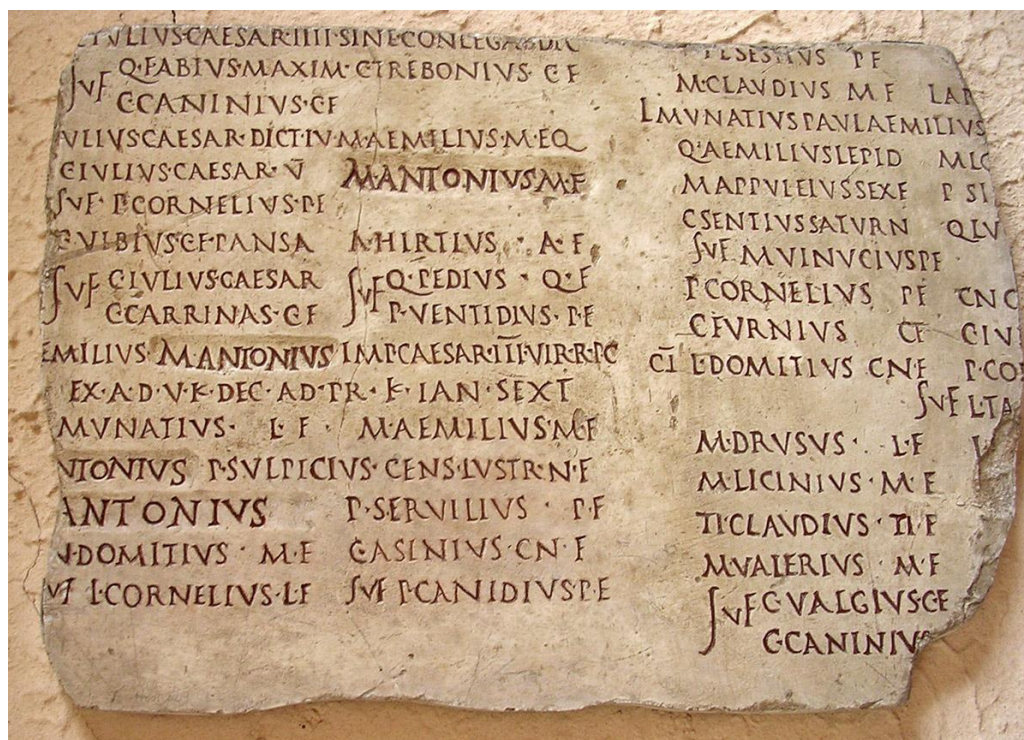 IVLIVS·CAESAR·IIII·SINE·CONLEGA·DIC
SVF Q·FABIVS·MAXIM· C·TREBONIVS· C F
C·CANINIVS·C·F
VLIVS·CAESAR·DICT·IV·M·AEMILIVS·M·EQ
C·IVLIVS·CAESAR·V̅ M·ANTONIVS·M·F
SVF· P·CORNELIVS·P·F
C·VIBIVS·C·F·PANSA A·HIRTIVS · A·F
SVF C·IVLIVS·CAESAR SVF Q·PEDIVS · Q·F
C·CARRINAS·C·F P·VENTIDIVS·P·F
EMILIVS·M·ANTONIVS IMP·CAESAR·III·VIR·R·P·C
EX·A·D·V·K·DEC·AD·PR·K·IAN·SEXT
MVNATIVS· L·F· M·AEMILIVS·M·F
NTONIVS P·SVLPICIVS·CENS·LVSTR·N·F
ANTONIVS P·SERVILIVS · P·F
N·DOMITIVS · M·F C·ASINIVS·CN·F
VF L·CORNELIVS·L·F SVF P·CANIDIVS·P·F
L·SESTIVS P F
M·CLAVDIVS M F
L MVNATIVS PAVL AEMILIVS
Q·AEMILIVS LEPID M LO
M APPVLEIVS SEX F P SI
C SENTIVS SATVRN Q LV
SVF M VINVCIVS P F
P CORNELIVS P F CN C
C FVRNIVS C F C IV
C I̅ L·DOMITIVS CN·F P·CO
SVF L·TA
M·DRVSVS· L·F
M·LICINIVS·M·F
TI·CLAVDIVS·TI·F
M·VALERIVS·M·F
SVF C·VALGIVS·C·F
C·CANINIVS